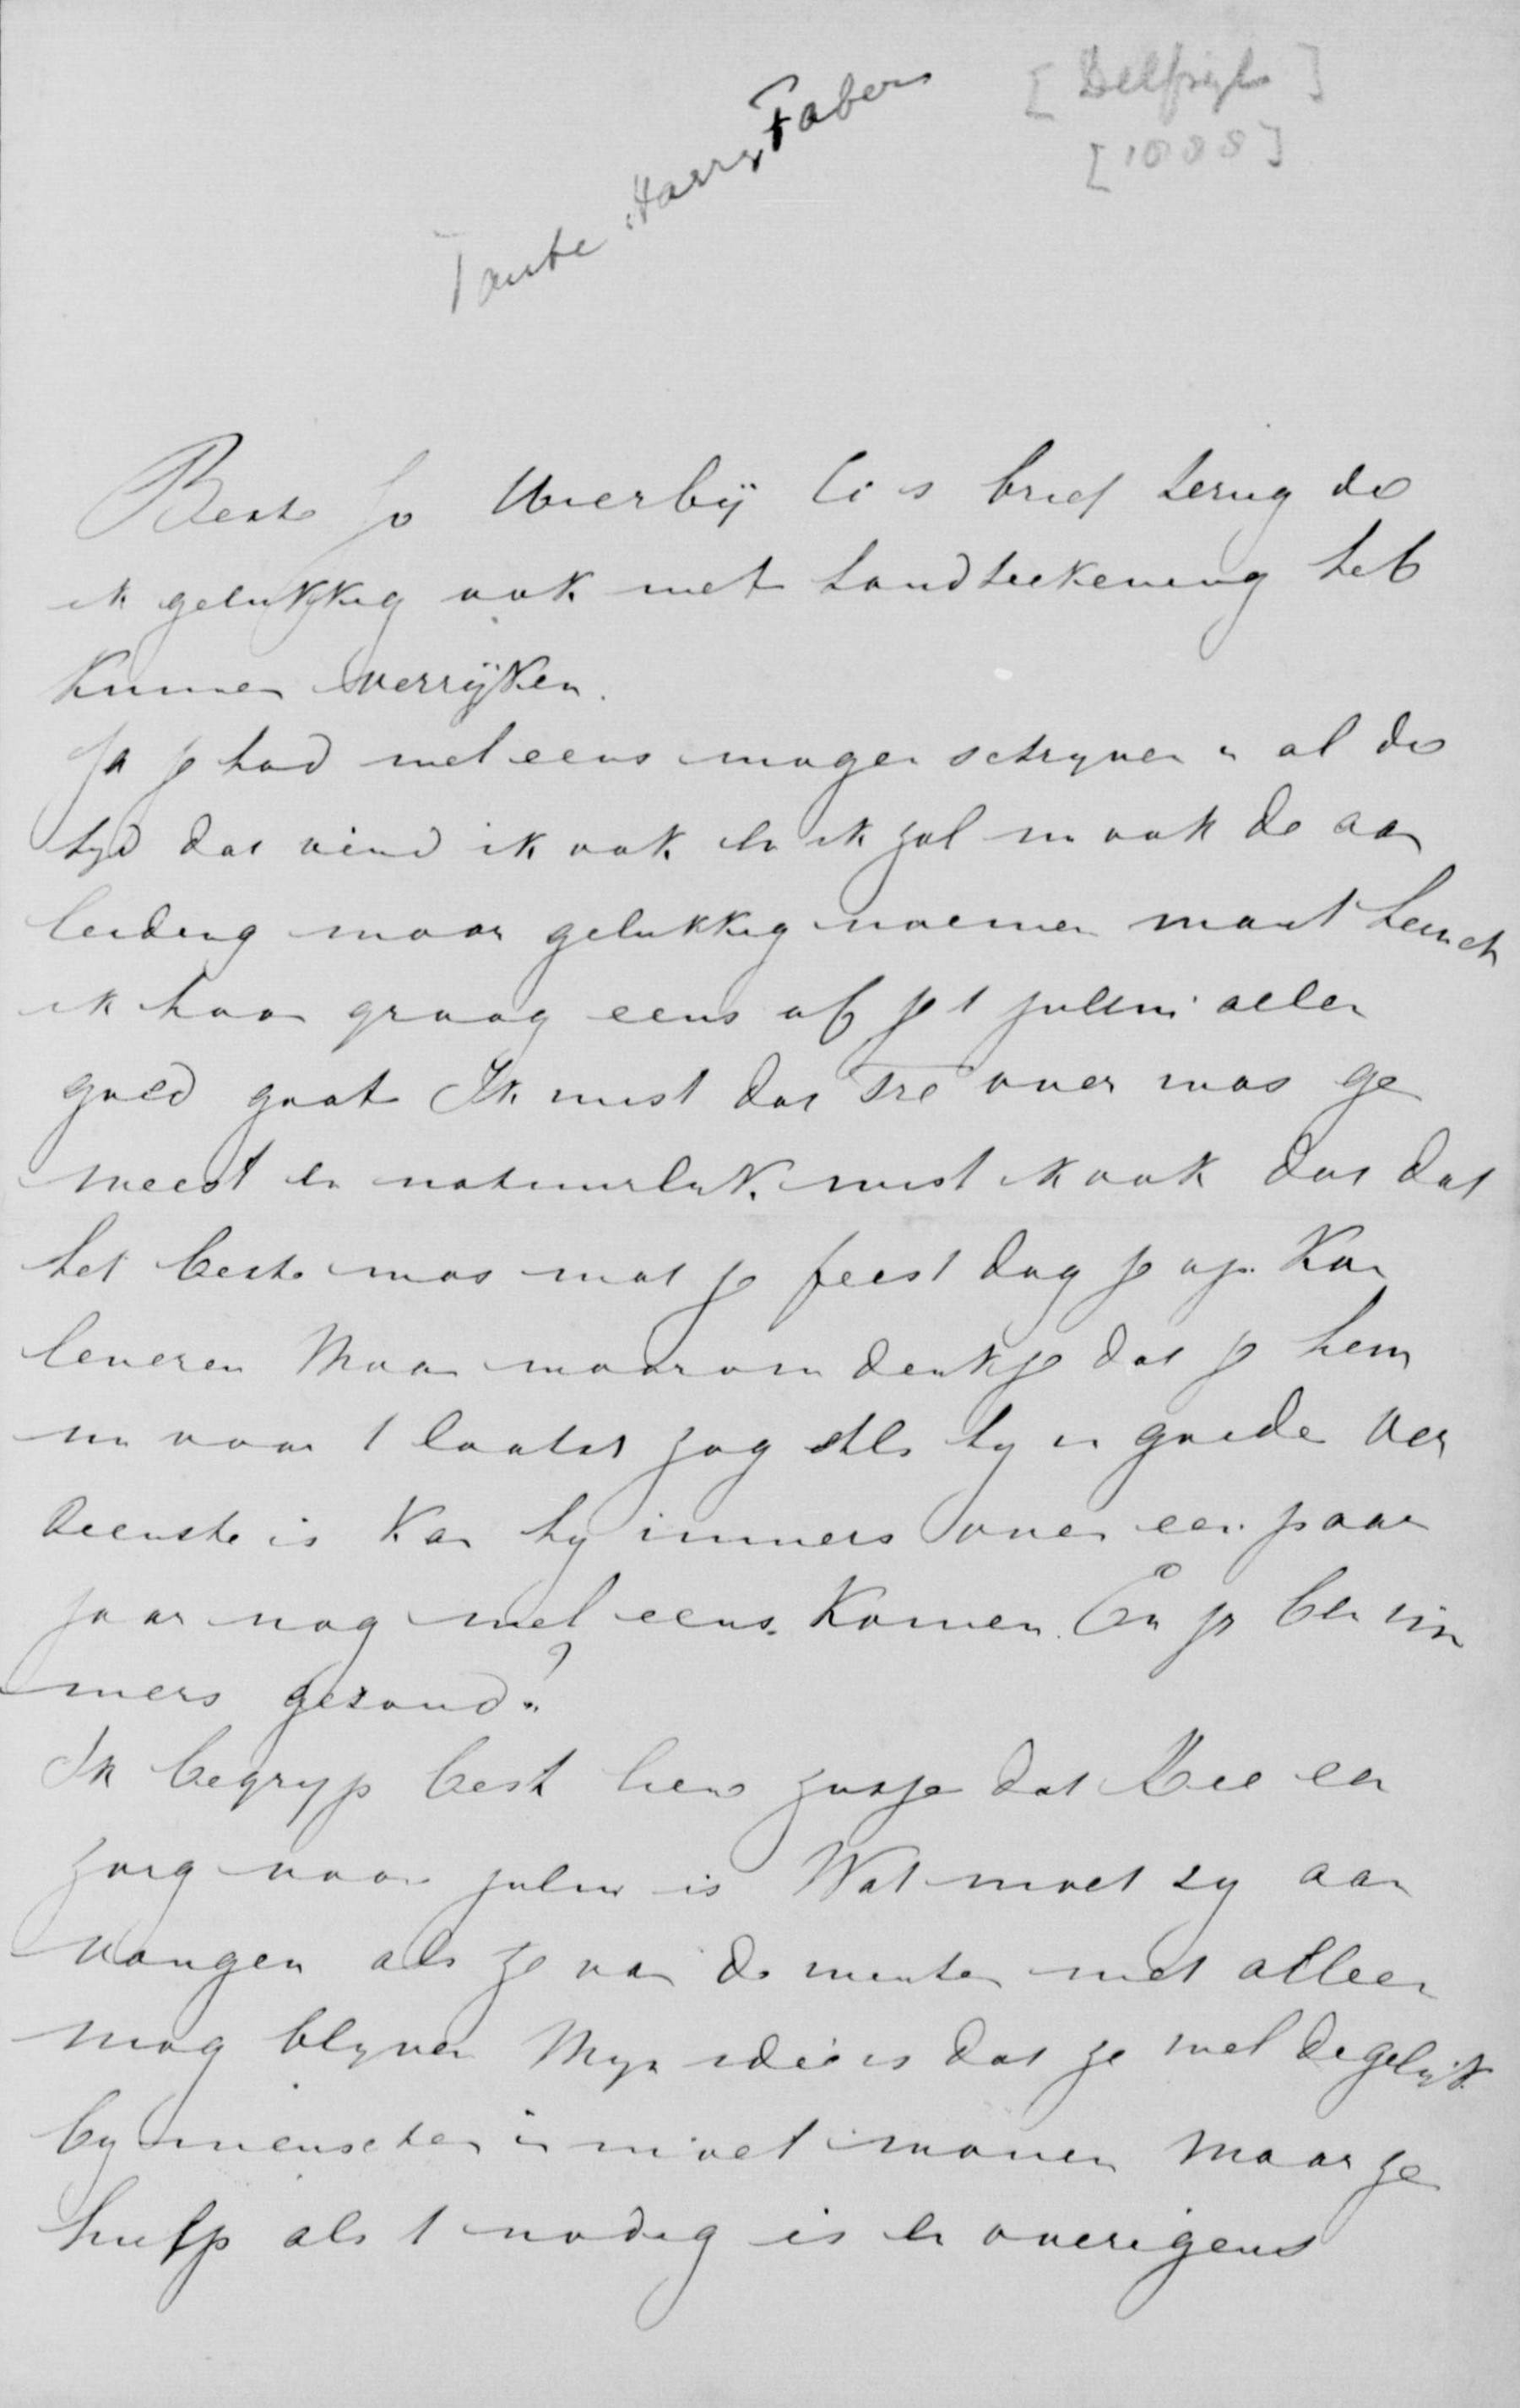 [Delfzijl]
[1888]
Tante Harry Fabers
Beste Jo Hierbij Co's brief terug die
ik gelukkig ook met handteekening heb
kunnen verrijken.
Ja je had wel eens mogen schryven in al die
tyd dat vind ik ook en ik zal nu ook de aan
leiding maar gelukkig noemen want
ik haar graag eens of je 't jullie allen
goed gaat Ik wist dat over was ge
weest en natuurlijk wist ik ook dat dat
het beste was wat je feest dag je op kon
leveren Maar waarom denk je dat je hem
nu voor 't laatst zag Als hy in goede ver
dienste is kan hy immers over een paar
jaar nog wel eens komen. En je ben im
mers gezond?
Ik begryp best lieve zusje dat een
zorg voor julie is Wat moet zy aan
vangen als ze van de winter niet alleen
mag blyven Myn idée is dat ze wel degelijk
by menschen in moet wonen Maar ze
hulp als 't nodig is en overigens